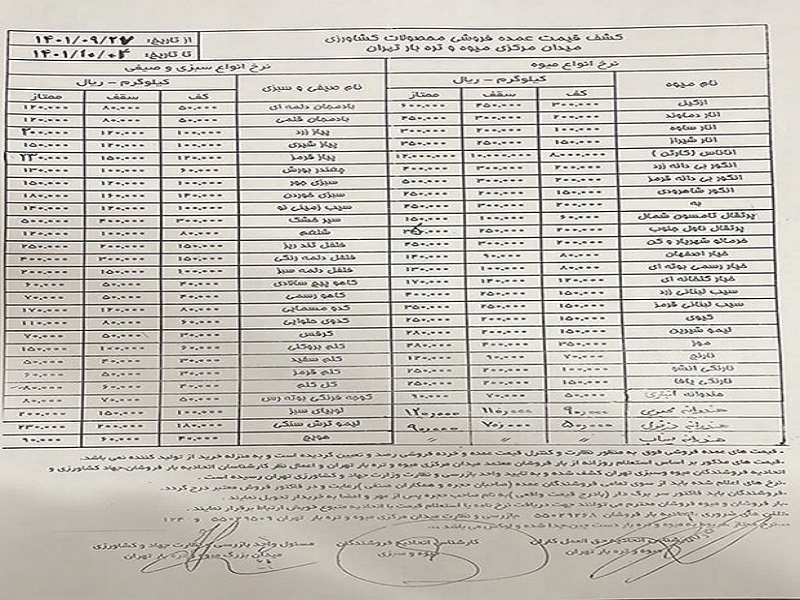 کشف قیمت عمده فروشی محصولات کشاورزی
میدان مرکزی میوه و تره بار تهران
از تاریخ: ۱۴۰۱/۰۹/۲۷
تا تاریخ: ۱۴۰۱/۱۰/۰۴
نرخ انواع میوه
نرخ انواع سبزی و صیفی
نام میوه کیلوگرم - ریال نام صیفی و سبزی کیلوگرم - ریال
کف سقف ممتاز کف سقف ممتاز
ازگیل ۳۰۰,۰۰۰ ۴۵۰,۰۰۰ ۶۰۰,۰۰۰ بادمجان دلمه ای ۵۰,۰۰۰ ۸۰,۰۰۰ ۱۲۰,۰۰۰
انار دماوند ۲۰۰,۰۰۰ ۳۰۰,۰۰۰ ۴۵۰,۰۰۰ بادمجان قلمی ۵۰,۰۰۰ ۸۰,۰۰۰ ۱۲۰,۰۰۰
انار ساوه ۱۰۰,۰۰۰ ۲۰۰,۰۰۰ ۳۰۰,۰۰۰ پیاز زرد ۱۰۰,۰۰۰ ۱۲۰,۰۰۰ ۲۰۰,۰۰۰
انار شیراز ۱۵۰,۰۰۰ ۲۵۰,۰۰۰ ۳۵۰,۰۰۰ پیاز شیری ۱۰۰,۰۰۰ ۱۲۰,۰۰۰ ۱۵۰,۰۰۰
آناناس (کارتن) ۸,۰۰۰,۰۰۰ ۱۰,۰۰۰,۰۰۰ ۱۲,۰۰۰,۰۰۰ پیاز قرمز ۱۲۰,۰۰۰ ۱۵۰,۰۰۰ ۲۳۰,۰۰۰
انگور بی دانه زرد ۲۰۰,۰۰۰ ۳۰۰,۰۰۰ ۴۰۰,۰۰۰ چغندر بورش ۶۰,۰۰۰ ۱۰۰,۰۰۰ ۱۳۰,۰۰۰
انگور بی دانه قرمز ۲۰۰,۰۰۰ ۳۰۰,۰۰۰ ۵۰۰,۰۰۰ سبزی جور ۱۰۰,۰۰۰ ۱۲۰,۰۰۰ ۱۵۰,۰۰۰
انگور شاهرودی ۱۵۰,۰۰۰ ۲۰۰,۰۰۰ ۲۵۰,۰۰۰ سبزی خوردن ۱۴۰,۰۰۰ ۱۶۰,۰۰۰ ۱۸۰,۰۰۰
به ۲۰۰,۰۰۰ ۳۰۰,۰۰۰ ۴۵۰,۰۰۰ سیب زمینی نو ۱۰۰,۰۰۰ ۱۲۰,۰۰۰ ۱۴۰,۰۰۰
پرتقال تامسون شمال ۶۰,۰۰۰ ۱۰۰,۰۰۰ ۱۵۰,۰۰۰ سیر خشک ۳۰۰,۰۰۰ ۴۰۰,۰۰۰ ۵۰۰,۰۰۰
پرتقال ناول جنوب ۲۰۰,۰۰۰ شلغم ۸۰,۰۰۰ ۱۰۰,۰۰۰ ۱۲۰,۰۰۰
خرمالو شهریار و کن ۲۰۰,۰۰۰ ۳۰۰,۰۰۰ ۴۵۰,۰۰۰ فلفل تند ریز ۱۵۰,۰۰۰ ۲۰۰,۰۰۰ ۲۵۰,۰۰۰
خیار اصفهان ۸۰,۰۰۰ ۹۰,۰۰۰ ۱۴۰,۰۰۰ فلفل دلمه رنگی ۱۵۰,۰۰۰ ۳۰۰,۰۰۰ ۴۰۰,۰۰۰
خیار رسمی بوته ای ۸۰,۰۰۰ ۱۰۰,۰۰۰ ۱۳۰,۰۰۰ فلفل دلمه سبز ۱۰۰,۰۰۰ ۱۵۰,۰۰۰ ۲۰۰,۰۰۰
خیار گلخانه ای ۱۰۰,۰۰۰ ۱۴۰,۰۰۰ ۱۷۰,۰۰۰ کاهو پیچ سالادی ۴۰,۰۰۰ ۵۰,۰۰۰ ۶۰,۰۰۰
سیب لبنانی زرد ۱۵۰,۰۰۰ ۲۵۰,۰۰۰ ۴۰۰,۰۰۰ کاهو رسمی ۴۰,۰۰۰ ۵۰,۰۰۰ ۷۰,۰۰۰
سیب لبنانی قرمز ۱۵۰,۰۰۰ ۲۵۰,۰۰۰ ۳۵۰,۰۰۰ کدو مسمایی ۸۰,۰۰۰ ۱۲۰,۰۰۰ ۱۷۰,۰۰۰
کیوی ۱۵۰,۰۰۰ ۲۰۰,۰۰۰ ۲۵۰,۰۰۰ کدوی حلوایی ۶۰,۰۰۰ ۸۰,۰۰۰ ۱۱۰,۰۰۰
لیمو شیرین ۱۵۰,۰۰۰ ۲۰۰,۰۰۰ ۲۸۰,۰۰۰ کرفس ۵۰,۰۰۰ ۷۰,۰۰۰
موز ۳۵۰,۰۰۰ ۴۰۰,۰۰۰ ۴۸۰,۰۰۰ کلم بروکلی ۶۰,۰۰۰ ۱۰۰,۰۰۰ ۱۵۰,۰۰۰
نارنج ۷۰,۰۰۰ ۹۰,۰۰۰ ۱۲۰,۰۰۰ کلم سفید ۳۰,۰۰۰ ۴۰,۰۰۰ ۵۰,۰۰۰
نارنگی انشو ۱۰۰,۰۰۰ ۲۰۰,۰۰۰ ۲۵۰,۰۰۰ کلم قرمز ۳۰,۰۰۰ ۵۰,۰۰۰ ۶۰,۰۰۰
نارنگی یافا ۱۵۰,۰۰۰ ۲۰۰,۰۰۰ ۲۵۰,۰۰۰ گل کلم ۶۰,۰۰۰ ۸۰,۰۰۰
هندوانه انباری ۵۰,۰۰۰ ۷۰,۰۰۰ ۹۰,۰۰۰ گوجه فرنگی بوته رس ۴۰,۰۰۰ ۷۰,۰۰۰ ۸۰,۰۰۰
هندوانه ۹۰,۰۰۰ ۱۱۰,۰۰۰ ۱۲۰,۰۰۰ لوبیای سبز ۱۰۰,۰۰۰ ۱۵۰,۰۰۰ ۲۰۰,۰۰۰
هندوانه دزفول ۵۰,۰۰۰ ۷۰,۰۰۰ ۹۰,۰۰۰ لیمو ترش سنگی ۱۸۰,۰۰۰ ۲۰۰,۰۰۰ ۲۳۰,۰۰۰
هندوانه میناب " " " هویج ۴۰,۰۰۰ ۶۰,۰۰۰ ۹۰,۰۰۰
- قیمت های عمده فروشی فوق به منظور نظارت و کنترل قیمت عمده و خرده فروشی رصد و تعیین گردیده است و به منزله خرید از تولید کننده نمی باشد.
- قیمت های مذکور بر اساس استعلام روزانه از بار فروشان معتمد میدان مرکزی میوه و تره بار تهران و اعمال نظر کارشناسان اتحادیه بار فروشان-جهاد کشاورزی و
اتحادیه فروشندگان میوه وسبزی تهران کشف شده و به تایید واحد بازرسی و نظارت وزارت جهاد و کشاورزی تهران رسیده است.
-نرخ های اعلام شده باید از سوی تمامی فروشندگان عمده (صاحبان حجره و همکاران صنفی) رعایت و در فاکتور فروش معتبر درج گردد.
-فروشندگان باید فاکتور سر برگ دار (بادرج قیمت واقعی) به نام صاحب حجره پس از مهر و امضا به خریدار تحویل نمایند.
-بار فروشان و میوه فروشان محترم می توانند جهت دریافت نرخ نامه یا استعلام قیمت با اتحادیه متبوع خویش ارتباط برقرار نمایند.
-تلفن های ضروری: اتحادیه بار فروشان بازرسی و نظارت میدان مرکزی میوه و تره بار تهران و ۱۲۴
کارشناس اتحادیه حق العمل کاران
میوه و تره بار تهران
کارشناس اتحادیه فروشندگان
میوه و سبزی
مسئول واحد بازرسی و نظارت جهاد و کشاورزی
میدان بزرگ میوه و تره بار تهران